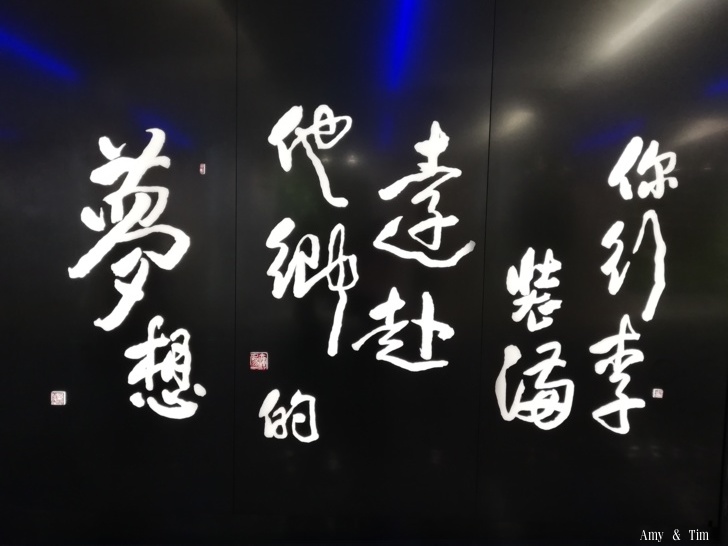 你行李
裝滿
遠赴
他鄉的
夢想
Amy & Tim